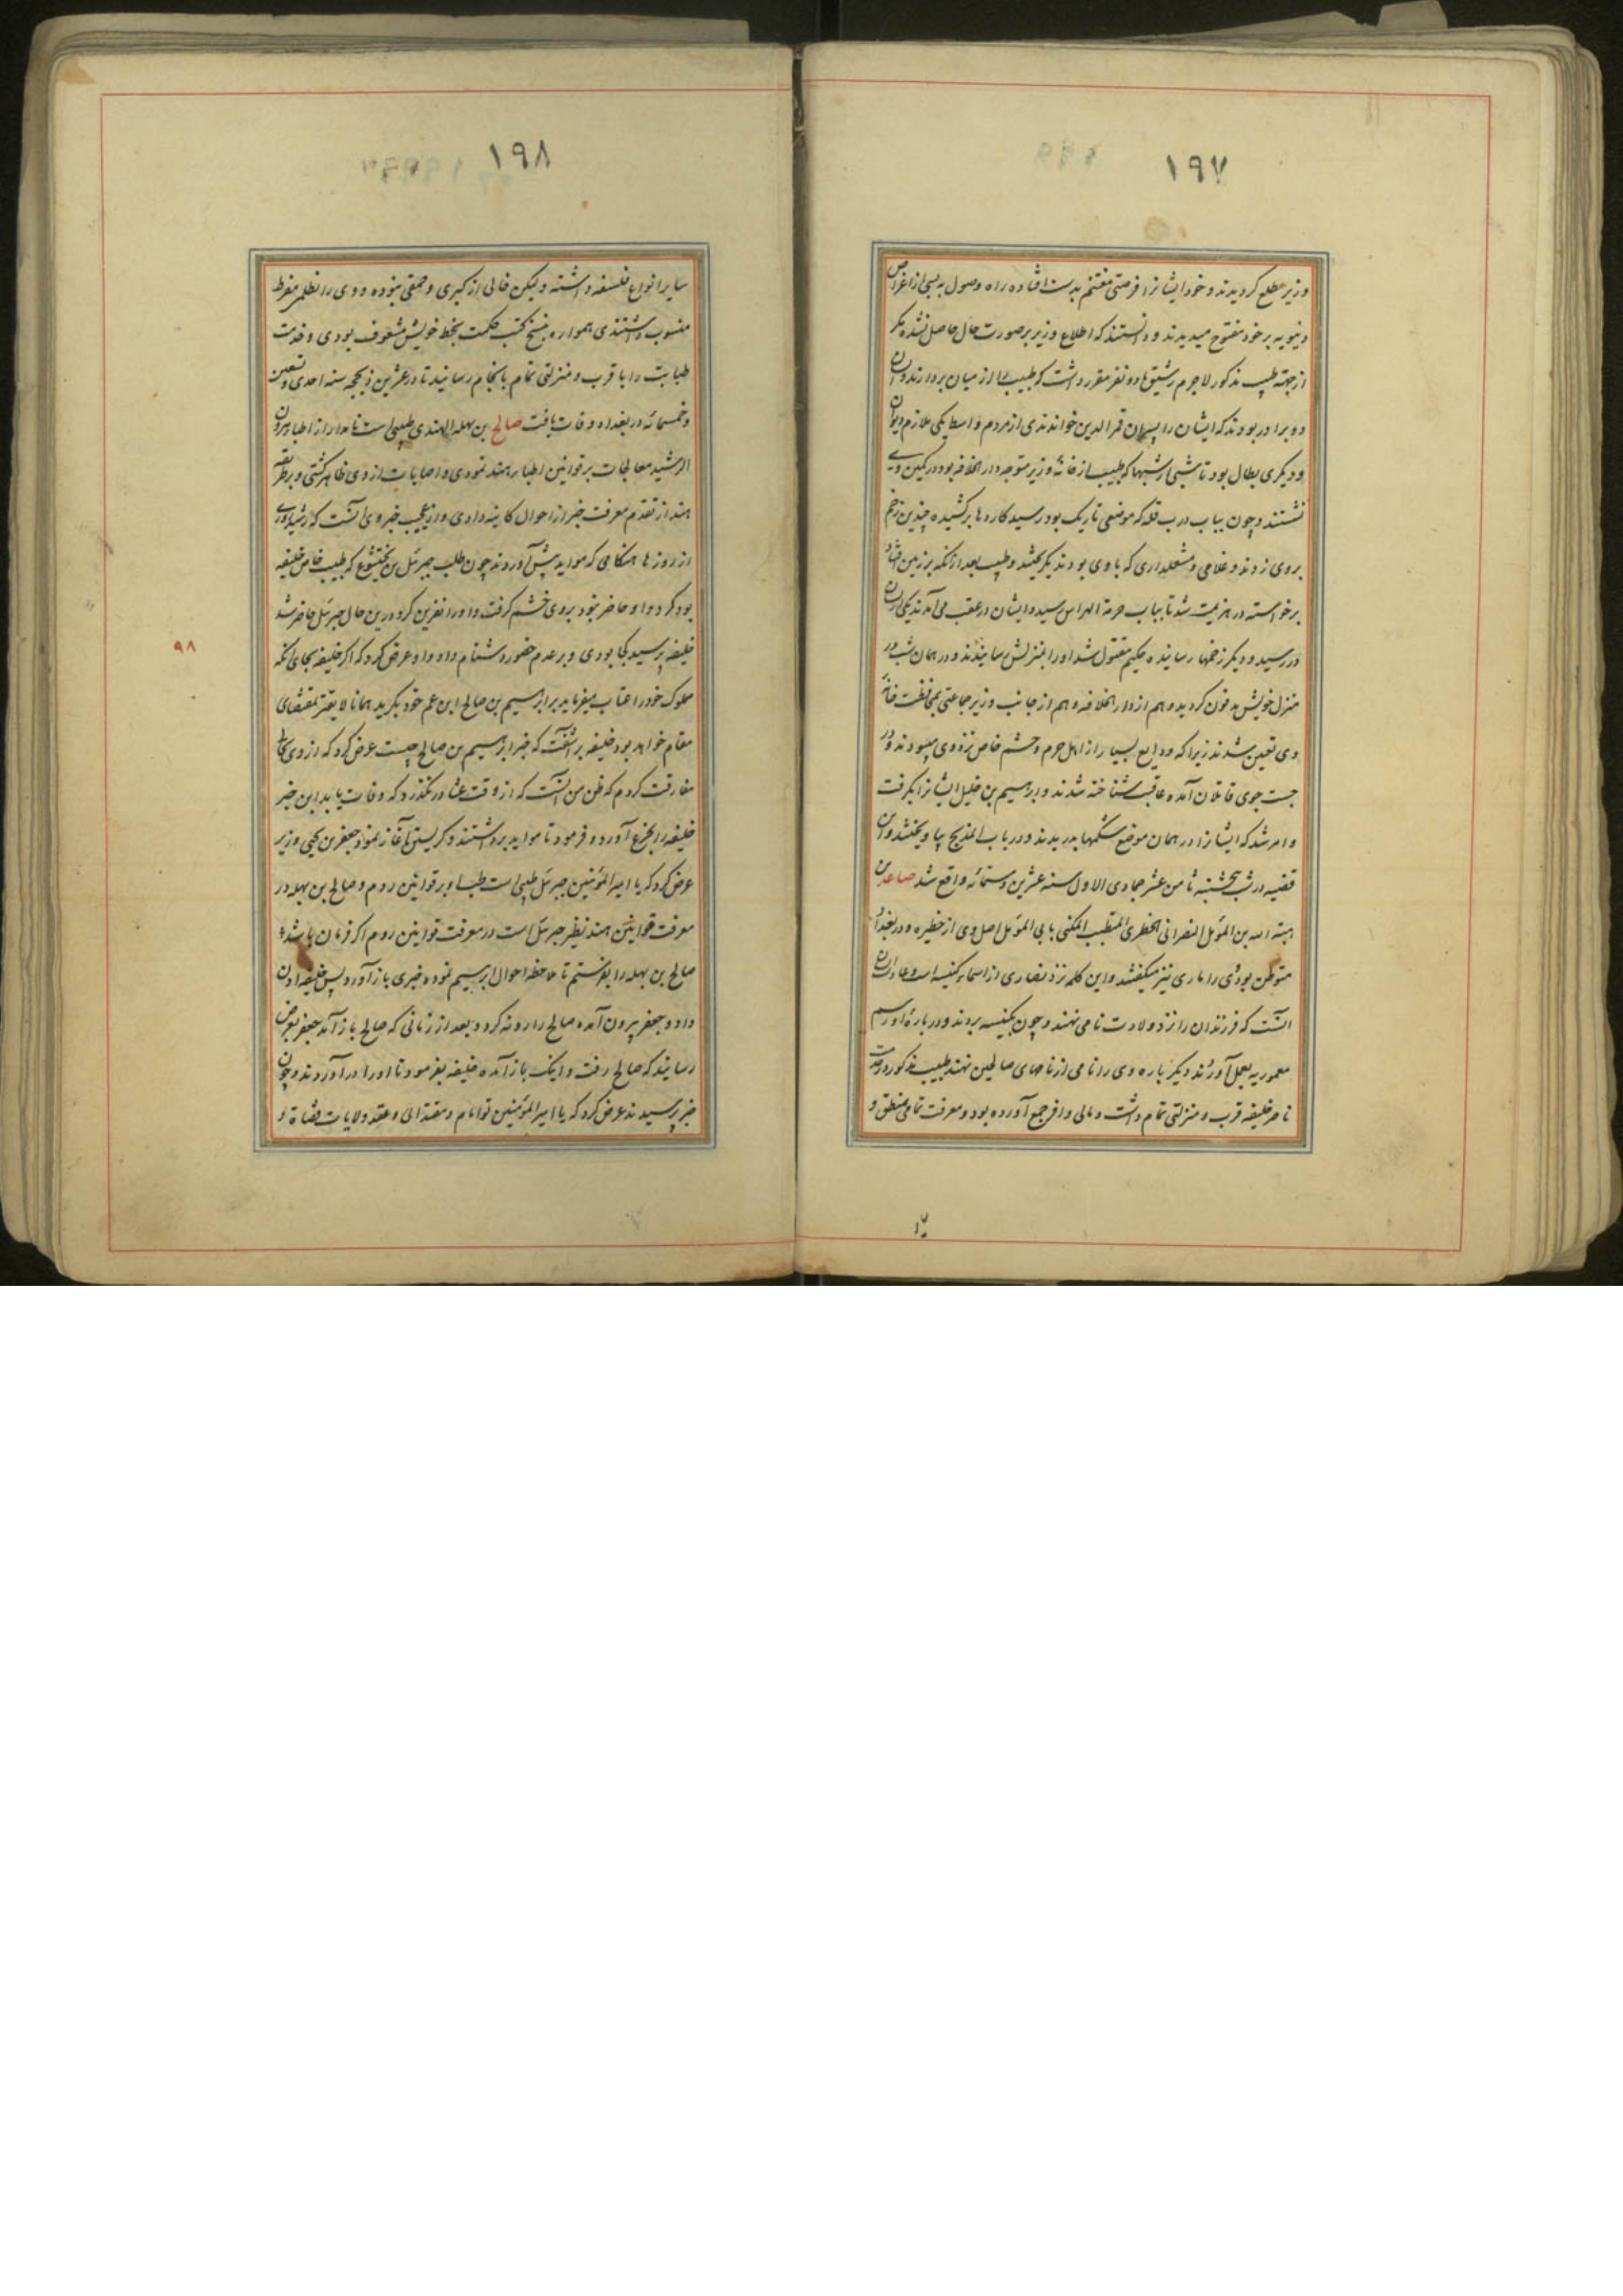 ١٩٧
وزیر مطلع کردیدند و خود ایشانرا فرصتی مغتنم بدست افتاده راه وصول به بسی از اغراض
دنیویه بر خود مفتوح میدیدند و دانستند که اطلاع وزیر بر صورت حال حاصل نشده مکر
از جهته طبیب مذکور لاجرم رشیق با دو نفر مقرر داشت که طبیب را از میان بردارند و آن
دو برادر بودند که ایشان را پسران قمر الدین خواندندی از مردم واسط یکی ملازم دیوان
و دیکری بطال بود تا شبی از شبها که طبیب از خانه وزیر متوجه دار الخلافه بود در کمین وی
نشستند و چون بباب درب قله که موضعی تاریک بود رسید کاردها برکشیده چندین زخم
بروی زدند و غلامی و مشعلداری که با وی بودند بکریختند و طبیب بعد از آنکه بر زمین افتاد
برخواسته در هزیمت شد تا بباب حرمة الهراس رسید و ایشان در عقب می آمدند یکی از آن
در رسید و دیکر زخمها رسانیده حکیم مقتول شد او را بمنزلش رسانیدند و در همان شب در
منزل خویش مدفون کردید و هم از دار الخلافه و هم از جانب وزیر جماعتی بمحافظت خانه
وی تعیین شدند زیرا که ودایع بسیار از اهل حرم و حشم خاص نزد وی میبود و در
جست جوی قاتلان آمده عاقبت شناخته شدند و ابرهیم بن خلیل ایشانرا بکرفت
و امر شد که ایشانرا در همان موضع شکمها بدریدند و در باب المذبح بیاویختند و این
قضیه در شب پنجشنبه ثامن عشر جمادی الاول سنه عشرین و ستمائه واقع شد صاعد بن
هبته الله بن المؤمل النصرانی الحظری المتطبب المکنی بابی المؤمل اصل وی از حظیره و در بغداد
متوطن بود وی را ماری نیز میکفتند و این کلمه نزد نصاری از اسماء کنیسه است و عادت ایشان
آنست که فرزندان را نزد ولادت نامی نهند و چون بکنیسه بردند و در باره او رسم
معموریه بعمل آورند دیکر باره وی را نامی از نامهای صالحین نهند طبیب مذکور در خدمت
ناصر خلیفه قرب و منزلتی تمام داشت و مالی وافر جمع آورده بود و معرفت تمامی منطق و
١٩٨
سایر انواع فلسفه داشته و لیکن خالی از کبری و حمقی نبوده و وی را بظلم مفرط
منسوب داشتندی همواره بنسخ کتب حکمت بخط خویش مشعوف بودی و خدمت
طبابت را با قرب و منزلتی تمام بانجام رسانید تا در عشرین ذیحجه سنه احدی و تسعین
و خمسمائه در بغداد وفات یافت صالح بن بهله الهندی طبیبی است نامدار از اطبا هرون
الرشید معالجات بر قوانین اطباء هند نمودی و اصابات از وی ظاهر کشتی و بر طریقه
هند از تقدم معرفت خبر از احوال کاینه دادی و از عجیب خبر وی آنست که رشید روزی
از روزها هنکامی که مواید پیش آوردند چون طلب جبرئل بن بختیشوع که طبیب خاص خلیفه
بود کرد و او حاضر نبود بروی خشم کرفت و او را نفرین کرد درین حال جبرئل حاضر شد
خلیفه پرسید کجا بودی و بر عدم حضور دشنام داد و او عرض کرد که اکر خلیفه بجای آنکه
مملوک خود را عتاب میفرماید بر ابرهیم بن صالح ابن عم خود بکرید همانا لایقتر بمقتضای
مقام خواهد بود خلیفه برآشفت که خبر ابرهیم بن صالح چیست عرض کرد که از وی حالی
مفارقت کردم که ظن من آنست که از وقت عشا در نکذرد که وفات یابد این خبر
خلیفه را بجزع آورد و فرمود تا مواید برداشتند و کریستن آغاز نمود جعفر بن یحیی وزیر
عرض کرد که یا امیر المؤمنین جبرئل طبیبی است طب او بر قوانین روم و صالح بن بهله در
معرفت قوانین هند نظیر جبرئل است در معرفت قوانین روم اکر فرمان باشد
صالح بن بهله را بفرستم تا ملاحظه احوال ابرهیم نموده خبری باز آورد پس خلیفه اذن
داد و جعفر بیرون آمده صالح را روانه کرد و بعد از زمانی که صالح باز آمد جعفر بعرض
رسانید که صالح رفت و اینک باز آمده خلیفه بفرمود تا او را در آوردند و چون
خبر پرسیدند عرض کرد که یا امیر المؤمنین تو امام و مقتدائی و عقد ولایات قضاة و
٩٨